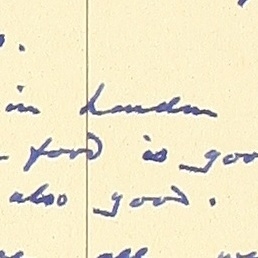 in London
food is goo
also good.
all